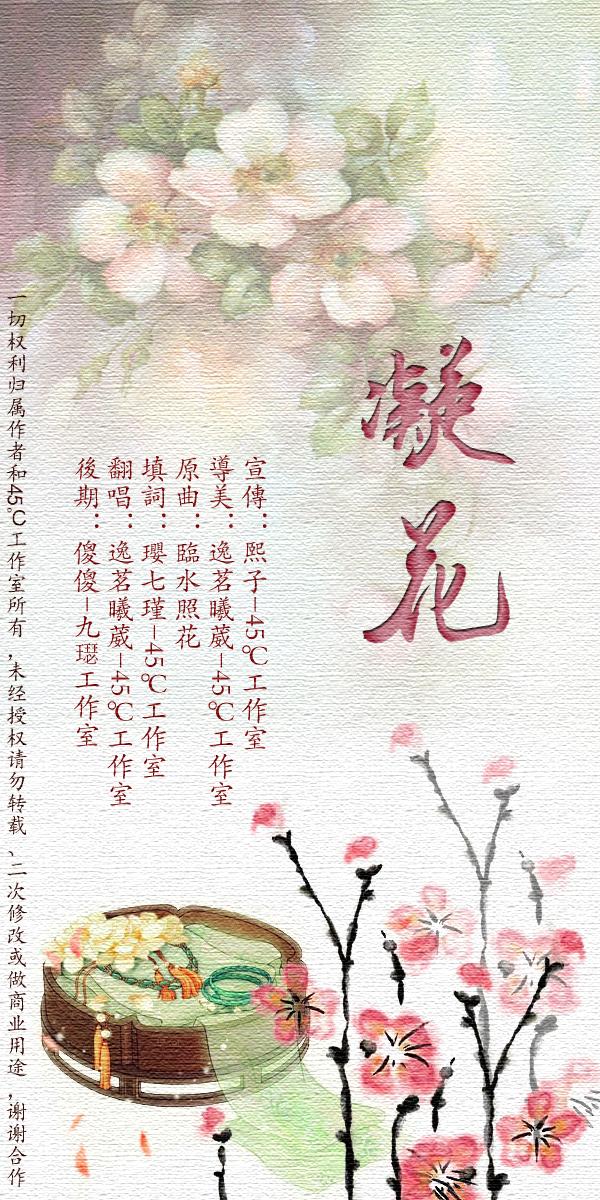 凝花
宣傳：熙子-45℃工作室
導美：逸茗曦葳-45℃工作室
原曲：臨水照花
填詞：瓔七瑾-45℃工作室
翻唱：逸茗曦葳-45℃工作室
後期：傻傻-九璱工作室
一切权利归属作者和45℃工作室所有，未经授权请勿转载、二次修改或做商业用途，谢谢合作